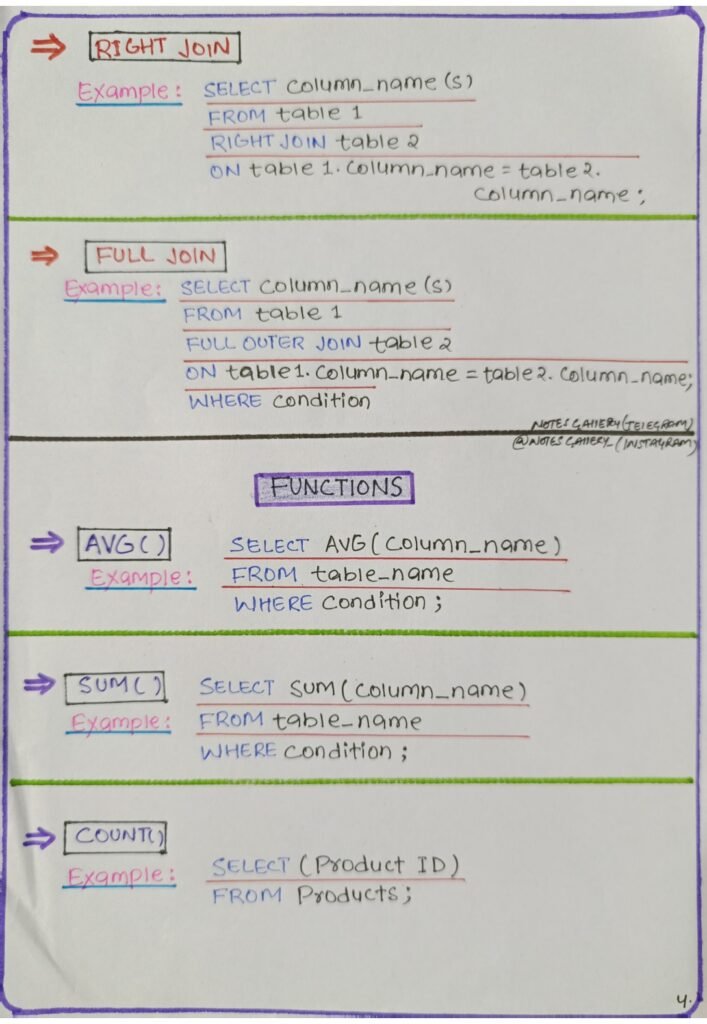 ⇒ RIGHT JOIN
Example: SELECT column_name(s)
FROM table 1
RIGHT JOIN table 2
ON table 1.column_name = table 2.
column_name;
⇒ FULL JOIN
Example: SELECT column_name(s)
FROM table 1
FULL OUTER JOIN table 2
ON table1.column_name = table2.column_name;
WHERE condition
NOTES GALLERY(TELEGRAM)
@NOTES GALLERY_(INSTAGRAM)
FUNCTIONS
⇒ AVG() SELECT AVG(column_name)
Example: FROM table_name
WHERE condition;
⇒ SUM() SELECT SUM(column_name)
Example: FROM table_name
WHERE condition;
⇒ COUNT()
Example: SELECT (Product ID)
FROM Products;
4.